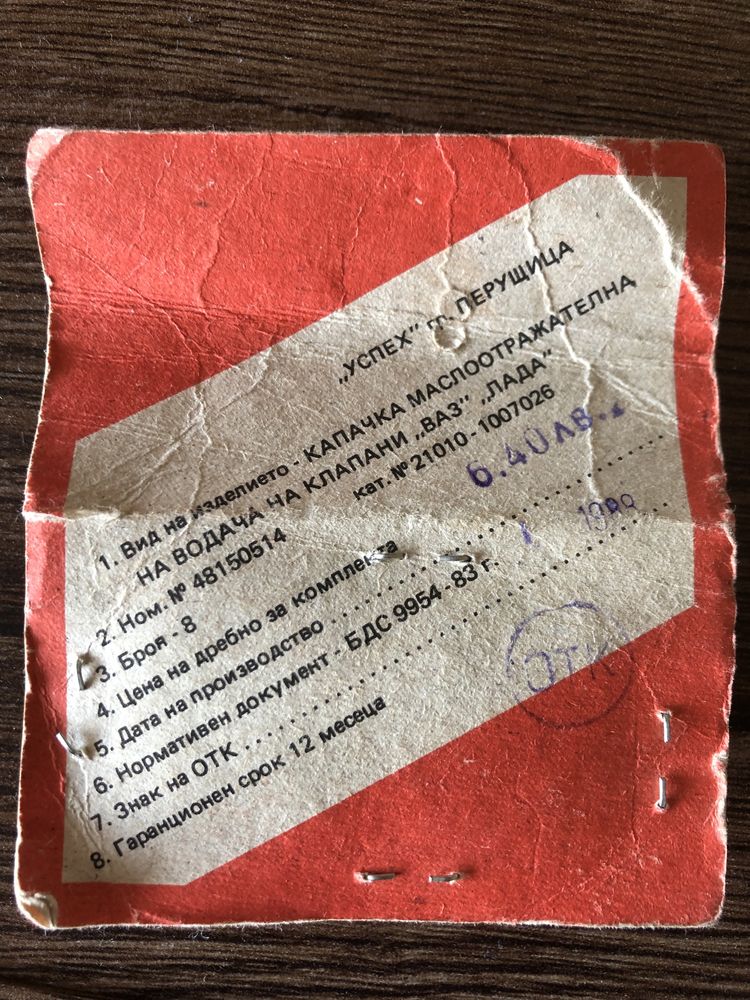 „УСПЕХ” гр. ПЕРУЩИЦА
1. Вид на изделието - КАПАЧКА МАСЛООТРАЖАТЕЛНА
НА ВОДАЧА НА КЛАПАНИ „ВАЗ” „ЛАДА”
2. Ном. № 48150514 кат. № 21010 - 1007026
3. Броя - 8
4. Цена на дребно за комплекта 6.40 лв.
5. Дата на производство
6. Нормативен документ - БДС 9954 - 83 г.
7. Знак на ОТК ОТК
8. Гаранционен срок 12 месеца